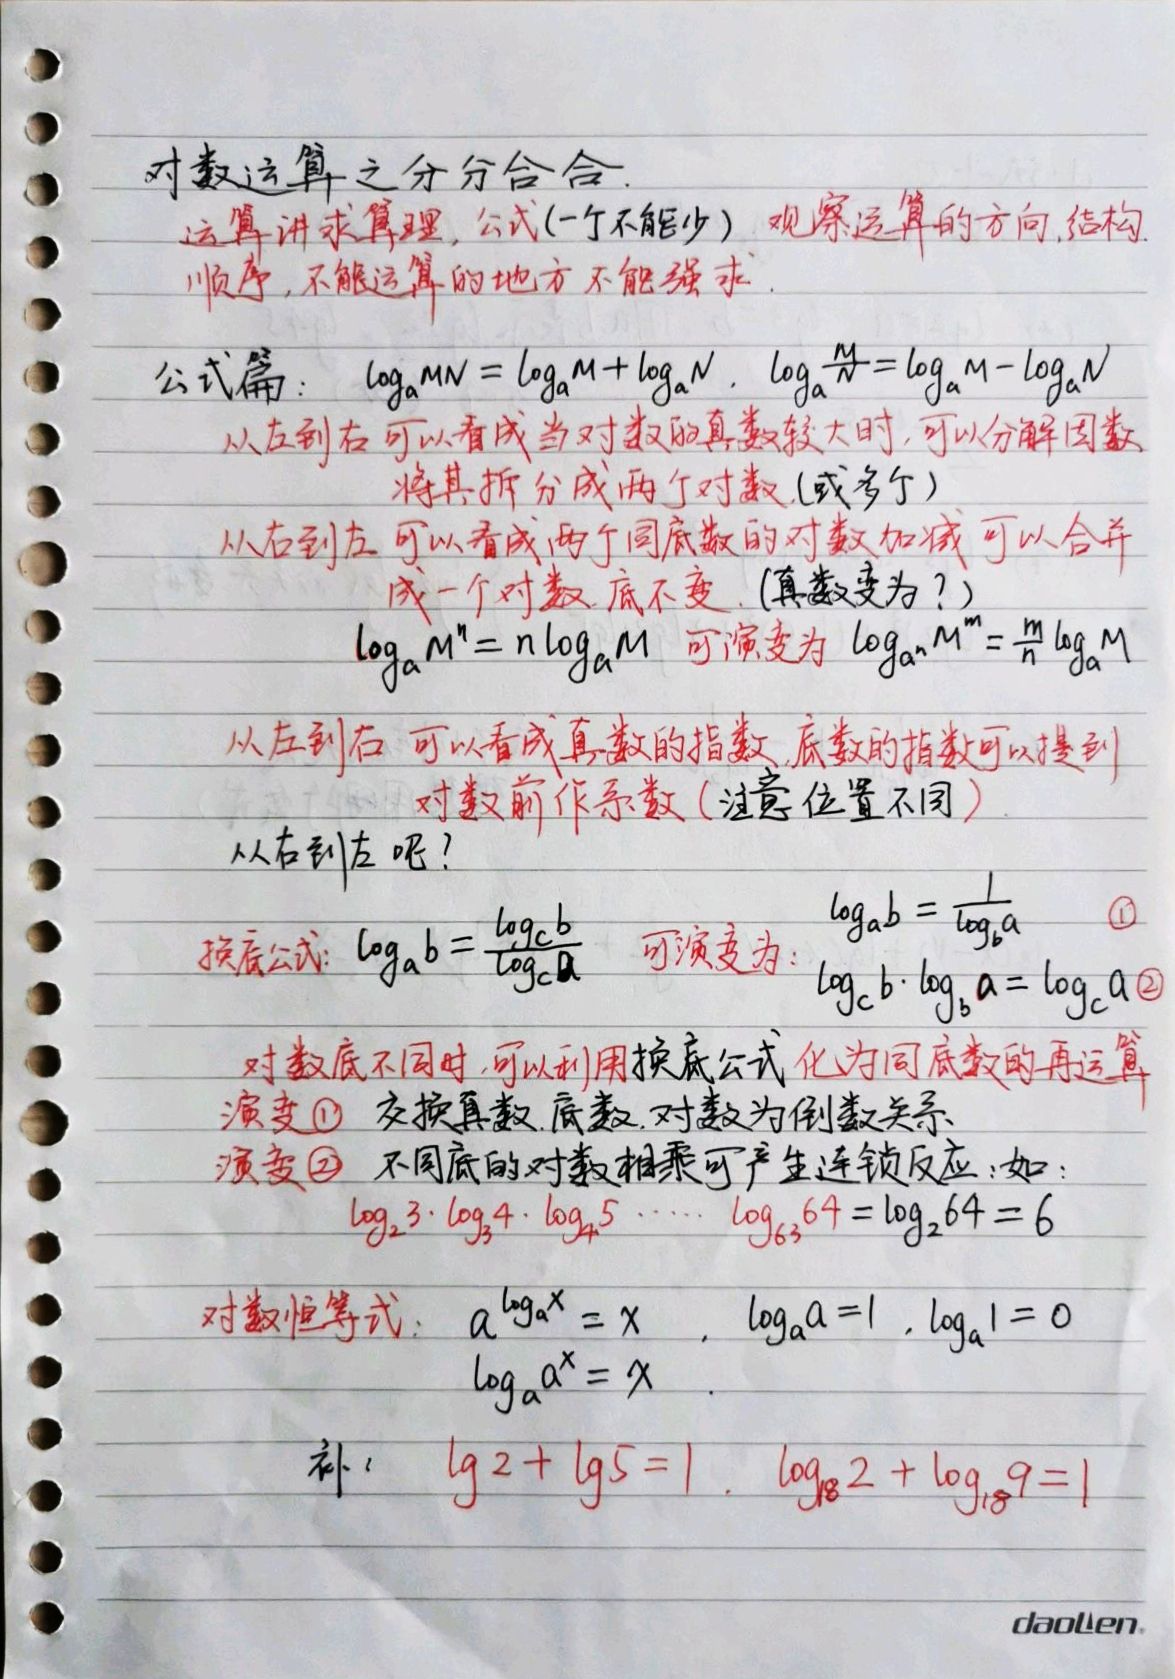 对数运算之分分合合.
运算讲求算理,公式(一个不能少) 观察运算的方向,结构.
顺序,不能运算的地方不能强求.
公式篇: logₐMN = logₐM + logₐN , logₐ M/N = logₐM - logₐN
从左到右可以看成当对数的真数较大时,可以分解因数
将其拆分成两个对数.(或多个)
从右到左 可以看成两个同底数的对数加减 可以合并
成一个对数.底不变.(真数变为?)
logₐMⁿ = n logₐM 可演变为 log_{aⁿ}M^m = m/n logₐM
从左到右 可以看成真数的指数,底数的指数可以提到
对数前作系数(注意位置不同)
从右到左呢?
换底公式: logₐb = log_c b / log_c a 可演变为: logₐb = 1/log_b a ①
log_c b · log_b a = log_c a ②
对数底不同时,可以利用换底公式化为同底数的再运算
演变① 交换真数.底数.对数为倒数关系.
演变② 不同底的对数相乘可产生连锁反应:如:
log₂3 · log₃4 · log₄5 ······ log₆₃64 = log₂64 = 6
对数恒等式: a^{logₐx} = x , logₐa = 1 , logₐ1 = 0
logₐaˣ = x .
补: lg2 + lg5 = 1 . log₁₈2 + log₁₈9 = 1
daolien